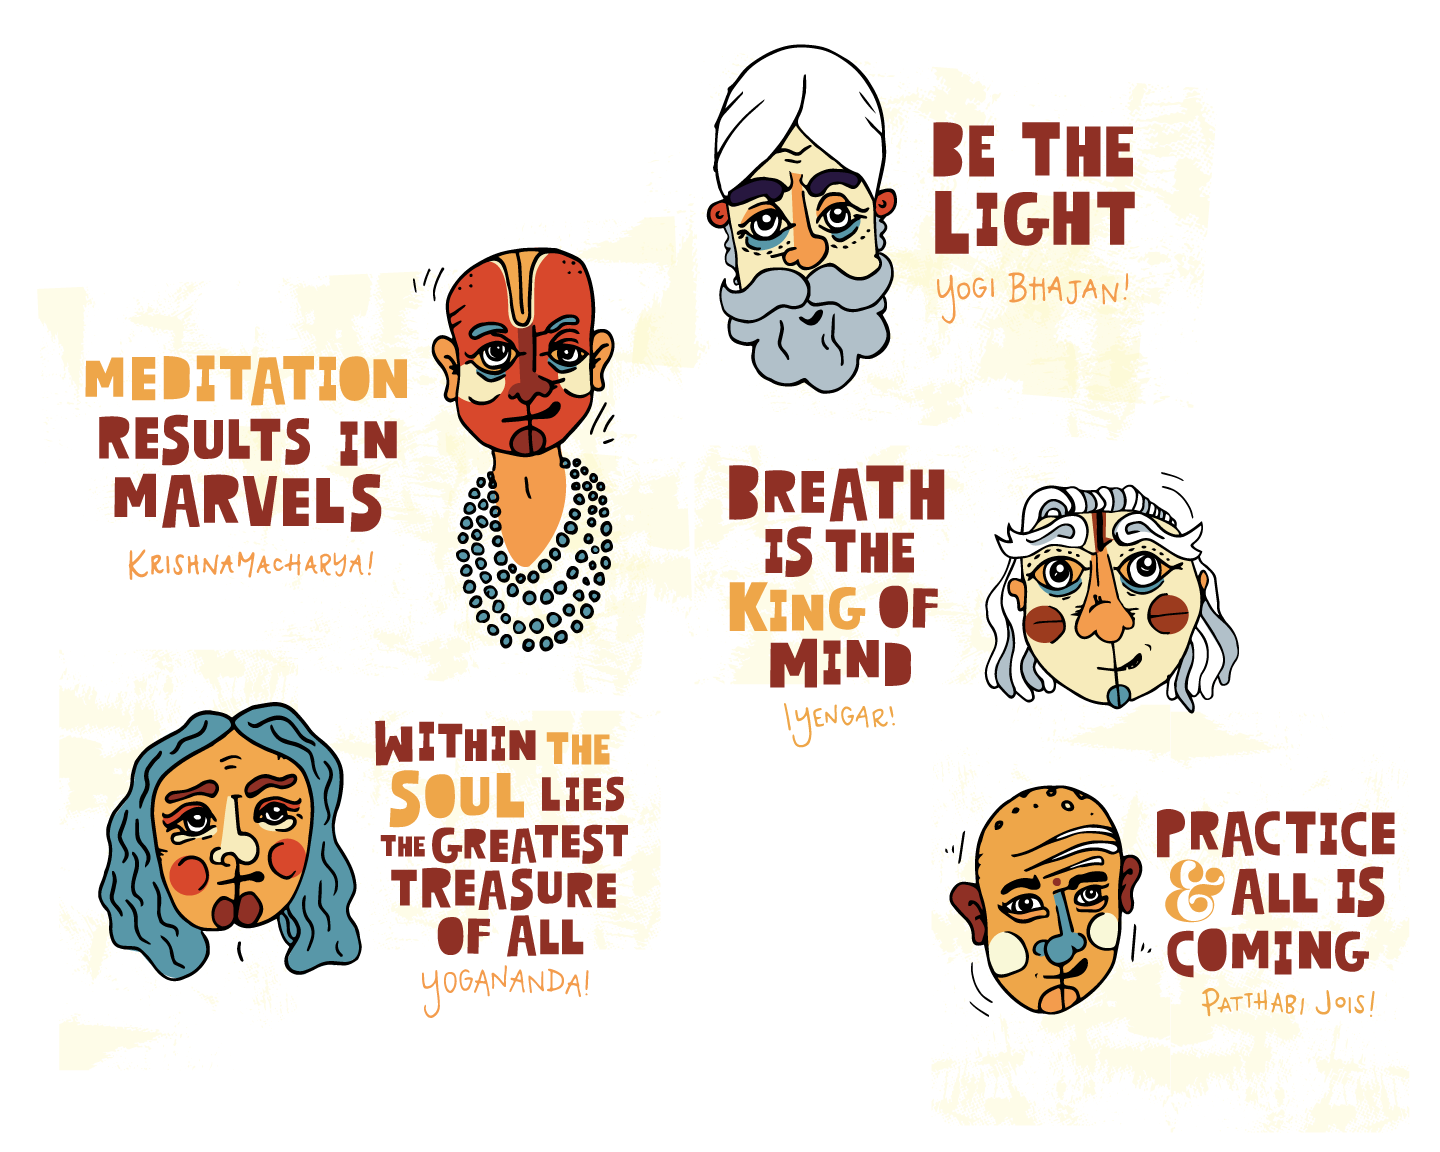 BE THE
LIGHT
YOGI BHAJAN!
MEDITATION
RESULTS IN
MARVELS
KRISHNAMACHARYA!
BREATH
IS THE
KING OF
MIND
IYENGAR!
WITHIN THE
SOUL LIES
THE GREATEST
TREASURE
OF ALL
YOGANANDA!
PRACTICE
& ALL IS
COMING
PATTHABI JOIS!